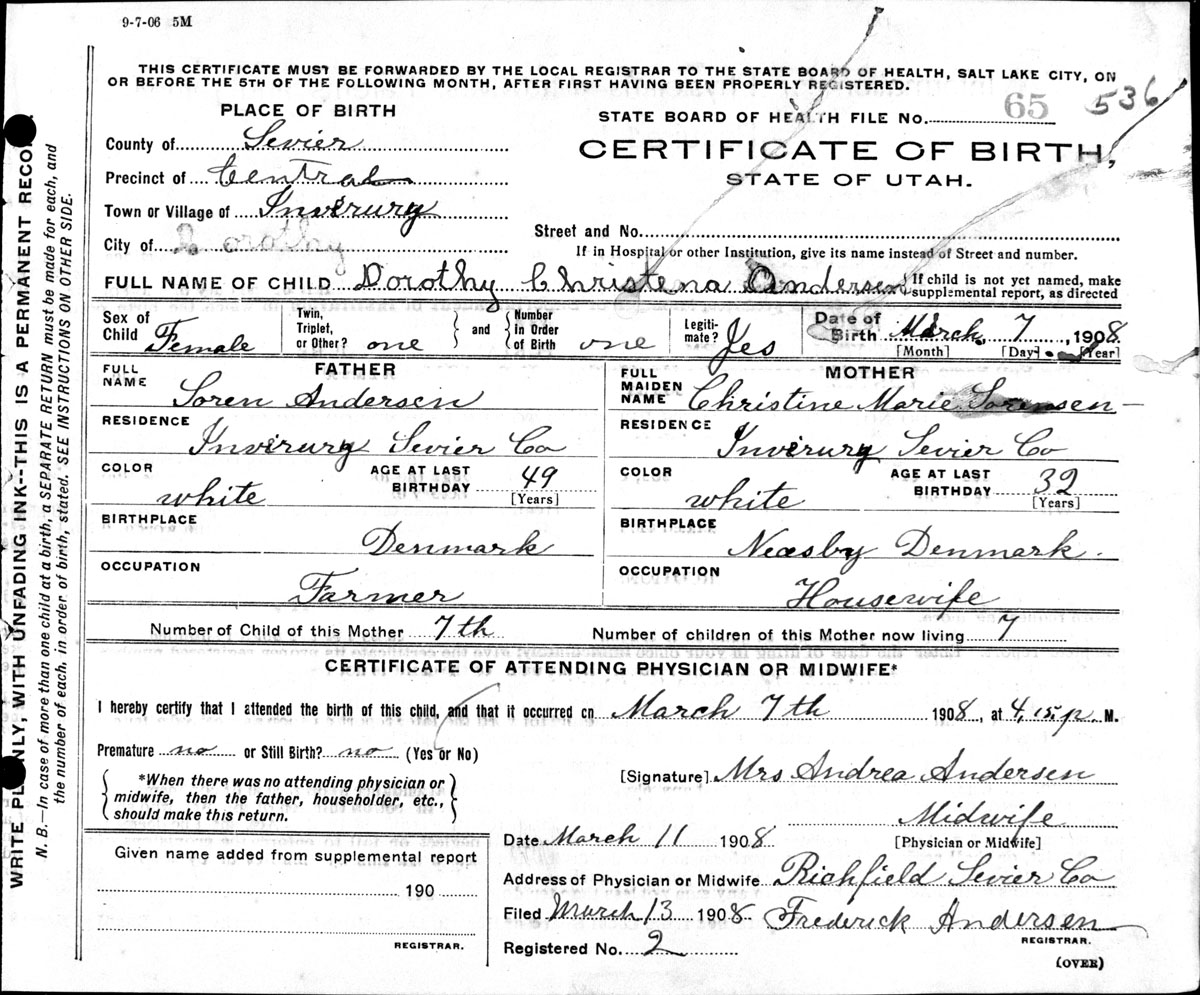 9-7-06 5M
THIS CERTIFICATE MUST BE FORWARDED BY THE LOCAL REGISTRAR TO THE STATE BOARD OF HEALTH, SALT LAKE CITY, ON
OR BEFORE THE 5TH OF THE FOLLOWING MONTH, AFTER FIRST HAVING BEEN PROPERLY REGISTERED.
PLACE OF BIRTH
STATE BOARD OF HEALTH FILE No. 65 536
County of Sevier
CERTIFICATE OF BIRTH,
STATE OF UTAH.
Precinct of Central
Town or Village of Inverury
Street and No.
City of Dorothy
If in Hospital or other Institution, give its name instead of Street and number.
FULL NAME OF CHILD Dorothy Christena Andersen
If child is not yet named, make
supplemental report, as directed
Sex of Child Female
Twin, Triplet, or Other? one
and
Number in Order of Birth one
Legiti-mate? Yes
Date of Birth March 7, 1908
[Month] [Day] [Year]
FATHER
FULL NAME Soren Andersen
RESIDENCE Invirury Sevier Co
COLOR white
AGE AT LAST BIRTHDAY 49 [Years]
BIRTHPLACE Denmark
OCCUPATION Farmer
MOTHER
FULL MAIDEN NAME Christine Marie Sorensen
RESIDENCE Inverury Sevier Co
COLOR white
AGE AT LAST BIRTHDAY 32 [Years]
BIRTHPLACE Neasby Denmark.
OCCUPATION Housewife
Number of Child of this Mother 7th
Number of children of this Mother now living 7
CERTIFICATE OF ATTENDING PHYSICIAN OR MIDWIFE*
I hereby certify that I attended the birth of this child, and that it occurred on March 7th 1908, at 4,15 p. M.
Premature no or Still Birth? no (Yes or No)
*When there was no attending physician or
midwife, then the father, householder, etc.,
should make this return.
[Signature] Mrs Andrea Andersen
Midwife
[Physician or Midwife]
Date March 11 1908
Address of Physician or Midwife Richfield Sevier Co
Filed March 13 1908 Frederick Andersen
REGISTRAR.
Registered No. 2
(OVER)
Given name added from supplemental report
190
REGISTRAR.
WRITE PLAINLY, WITH UNFADING INK--THIS IS A PERMANENT RECORD.
N. B.—In case of more than one child at a birth, a SEPARATE RETURN must be made for each, and
the number of each, in order of birth, stated. SEE INSTRUCTIONS ON OTHER SIDE.